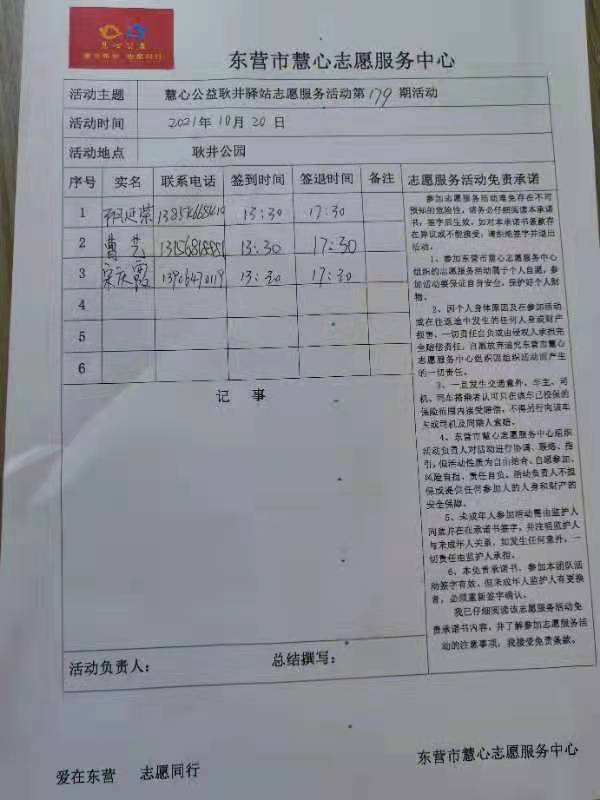 慧心公益
爱在东营 志愿同行
东营市慧心志愿服务中心
活动主题 慧心公益耿井驿站志愿服务活动第179期活动
活动时间 2021年10月20日
活动地点 耿井公园
序号 实名 联系电话 签到时间 签退时间 备注 志愿服务活动免责承诺
1 13:30 17:30
2 曹芸 13:30 17:30
3 宋庆霞 13:30 17:30
4
5
6
记 事
参加志愿服务活动难免存在不可
预知的危险性，请务必仔细阅读本承诺
书，签字后生效，如对本承诺书条款存
在异议或不能接受，请拒绝签字并退出
活动。
1、参加东营市慧心志愿服务中心
组织的志愿服务活动属于个人自愿，参
加活动要保证自身安全，保护好个人财
物。
2、因个人身体原因及在参加活动
或在往返途中发生的任何人身或财产
损害，一切责任自负或由侵权人承担完
全赔偿责任，自愿放弃追究东营市慧心
志愿服务中心组织因组织活动而产生
的一切责任。
3、一旦发生交通意外，车主、司
机、同车搭乘者认可只在该车已投保的
保险范围内接受赔偿，不得另行向该车
车主或司机及同乘人索赔。
4、东营市慧心志愿服务中心组织
活动负责人对活动进行协调、联络、指
引，但活动性质为自由结合、自愿参加、
风险自担、责任自负。活动负责人不担
保或提供任何参加人的人身和财产的
安全保障。
5、未成年人参加活动需由监护人
同意并在在承诺书签字，并注明监护人
与未成年人关系，如发生任何意外，一
切责任由监护人承担。
6、本免责承诺书，参加本团队活
动签字有效，但未成年人监护人有更换
者，必须重新签字确认。
我已仔细阅读该志愿服务活动免
责承诺书内容，并了解参加志愿服务活
动的注意事项，我接受免责条款。
活动负责人： 总结撰写：
爱在东营 志愿同行 东营市慧心志愿服务中心